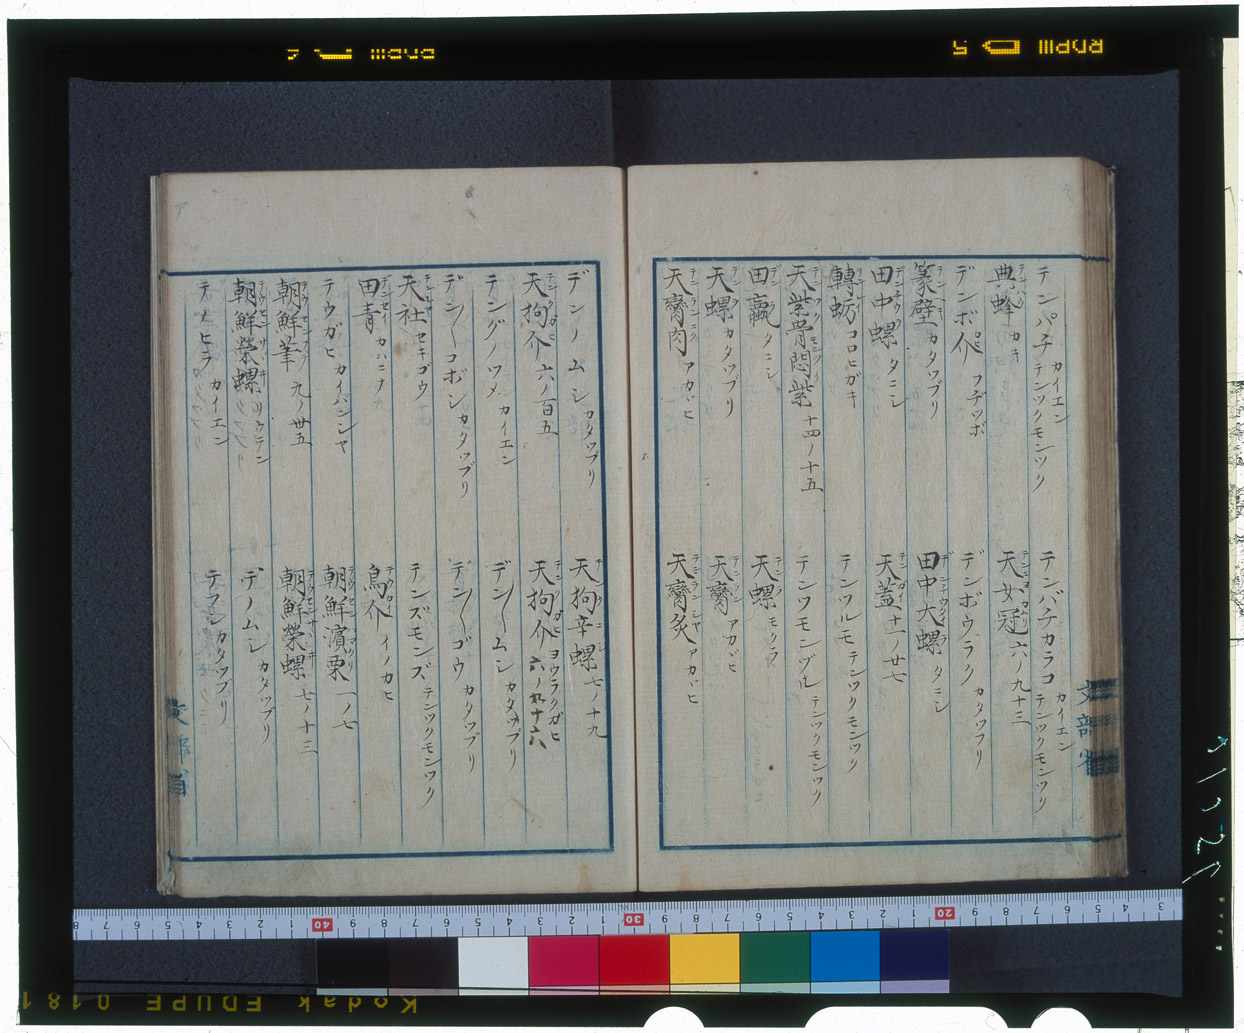 テンパチ カイエン テンツクモンツク
典蜂 カキ
デンボ介 フヂツボ
篆壁 カタツブリ
田中螺 タニシ
轉蚄 コロビガキ
天紫骨悶紫 十四ノ十五
田蠃 タニシ
天螺 カタツブリ
天臠肉 アカヾヒ
テンバチカラコ カイエン テンツクモンツク
天女冠 六ノ九十三
デンボウラク カタツブリ
田中大螺 タニシ
天蓋 十一ノ廿七
テンツルモ テンツクモンツク
テンツモンヅル テンツクモンツク
天螺 モクラ
天臠 アカヾヒ
天臠炙 アカヾヒ
文部省
デンノムシ カタツブリ
天狗介 六ノ百五
テングノツメ カイエン
デン〱コボシ カタツブリ
天社 セキゴウ
田青 カハニナ
テウガヒ カイバシヤ
朝鮮筆 九ノ廿五
朝鮮榮螺 リウテン
テノヒラ カイエン
天狗辛螺 七ノ十九
天狗介 ヨウラクガヒ 六ノ九十六
デン〱ムシ カタツブリ
デン〱ゴウ カタツブリ
テンズモンズ テンツクモンツク
鳥介 イノカヒ
朝鮮濱栗 一ノ七
朝鮮榮螺 七ノ十三
デノムシ カタツブリ
デフシ カタツブリ
文部省
RDPIII
5
RDPIII
Kodak EDUPE 0181